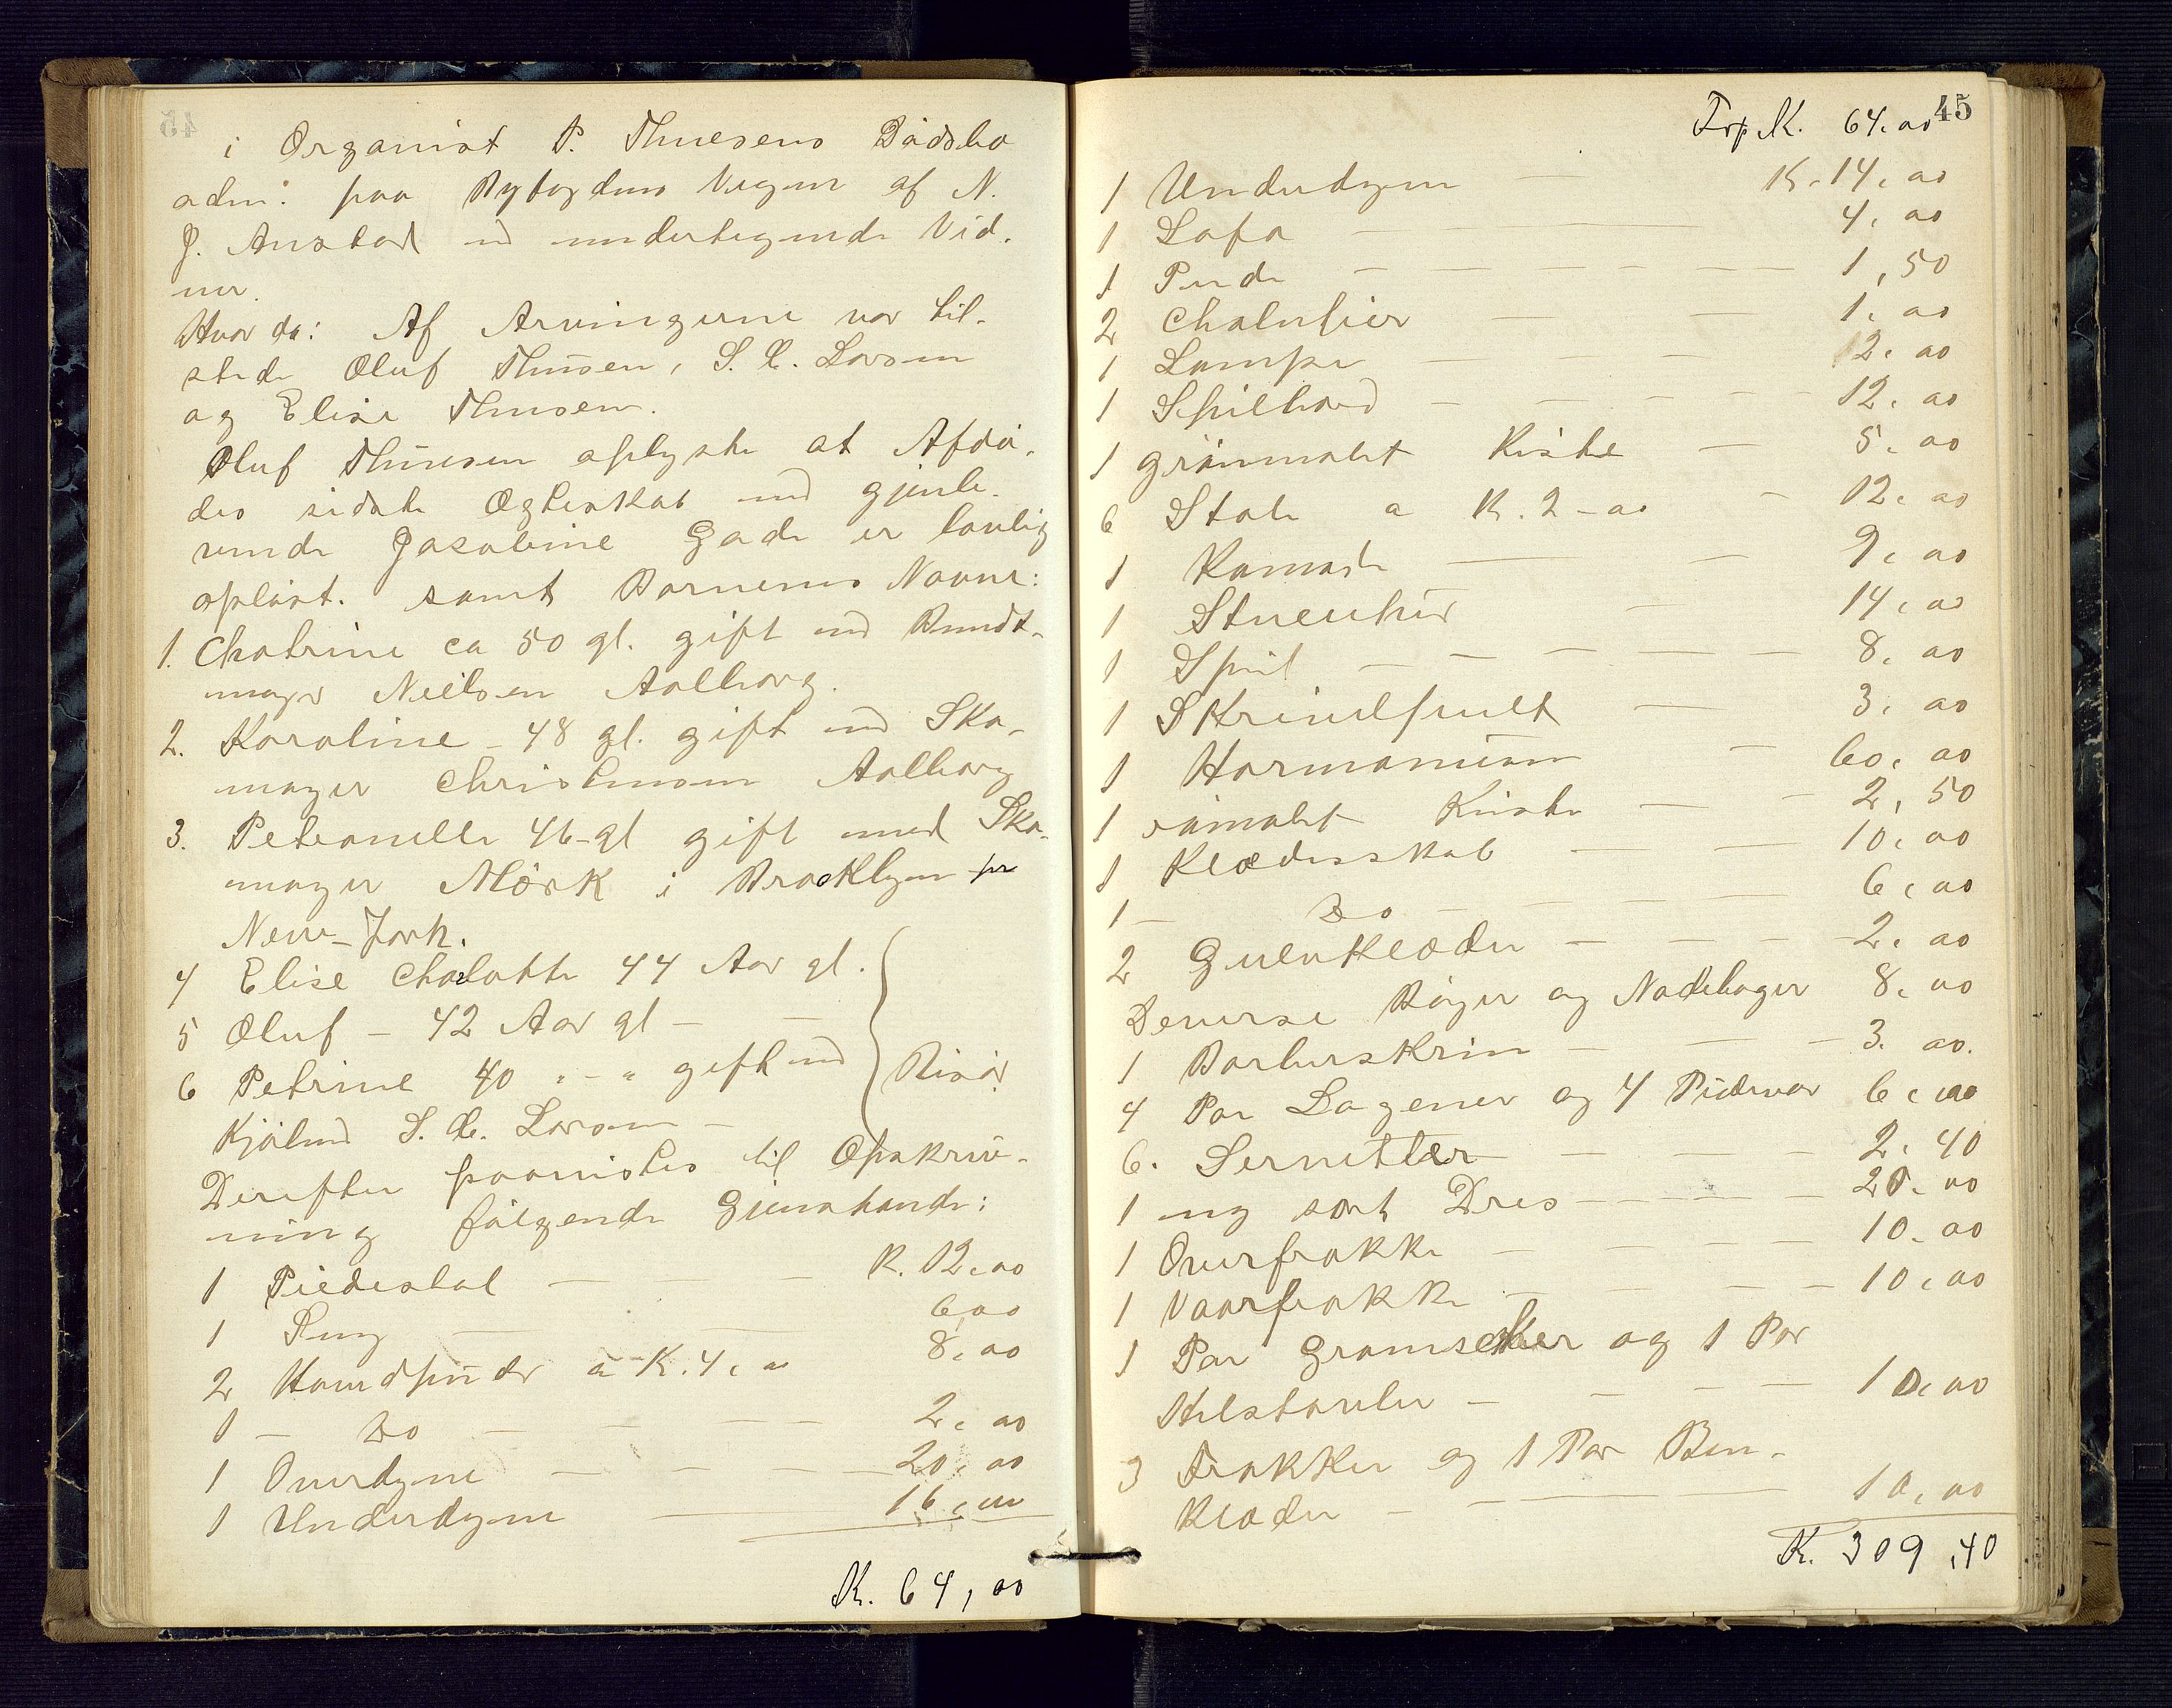 i Organist P. Thuesens Dødsbo
adm: paa Byfogdens Vegne af N.
J. Anstad med undertegnede Vid-
ner.
Hvor da: Af Arvingerne var til-
stede Oluf Thuesen, S. C. Larsen
og Elise Thuesen.
Oluf Thuesen oplyste at Afdø-
des sidste Ægteskab med gjenle-
vende Jasobine Gade er lovlig
opløst. samt Børnenes Navne:
1. Chatrine ca 50 gl. gift med Bundt-
mager Neilsen Aalborg.
2. Karoline - 48 gl. gift med Sko-
mager Christensen Aalborg
3. Petronelle 46-gl gift med Sko-
mager Mørk i Brooklyn pr
New-York.
4 Elise Chalotte 44 Aar gl.
5 Oluf - 42 Aar gl -
6 Petrine 40 " - " gift med
Kjølmd S. C. Larsen -
Risør
Derefter paavistes til Opskriv-
ning følgende Gjenstande:
1 Piedestal — — K. 12,00
1 Seng — — 6,00
2 Hovedpuder a K. 4,00 8,00
1 - Do - — — 2,00
1 Overdyne — — 20,00
1 Underdyne — 16,00
K. 64,00
45
Trp K. 64,00
1 Underdyne — K. 14,00
1 Sofa — — 4,00
1 Pude — — 1,50
2 Chalusier — — 1,00
1 Lampe — — 12,00
1 Spilbord — — 12,00
1 grønmalet Kiste — 5,00
6 Stole a K. 2-00 — 12,00
1 Komode — — 9,00
1 Stueuhr — 14,00
1 Speil — — 8,00
1 Skrivepult — 3,00
1 Harmonium — 60,00
1 rømalet Kiste — 2,50
1 Klædesskab — — 10,00
1 - Do — — 6,00
2 Gulvklæder — — 2,00
Deverse Bøger og Nodebøger 8,00
1 Barberskrin — — 3.00.
4 Par Lagener og 4 Pudevar 6,00
6. Servetter — — 2,40
1 ny sort Dres — — 20,00
1 Overfrakke — — 10,00
1 Vaarfrakke — — 10,00
1 Par Gramscher og 1 Par
Helstøvler — — 10,00
3 Frakker og 1 Par Ben-
klæder — — 10,00
K. 309,40